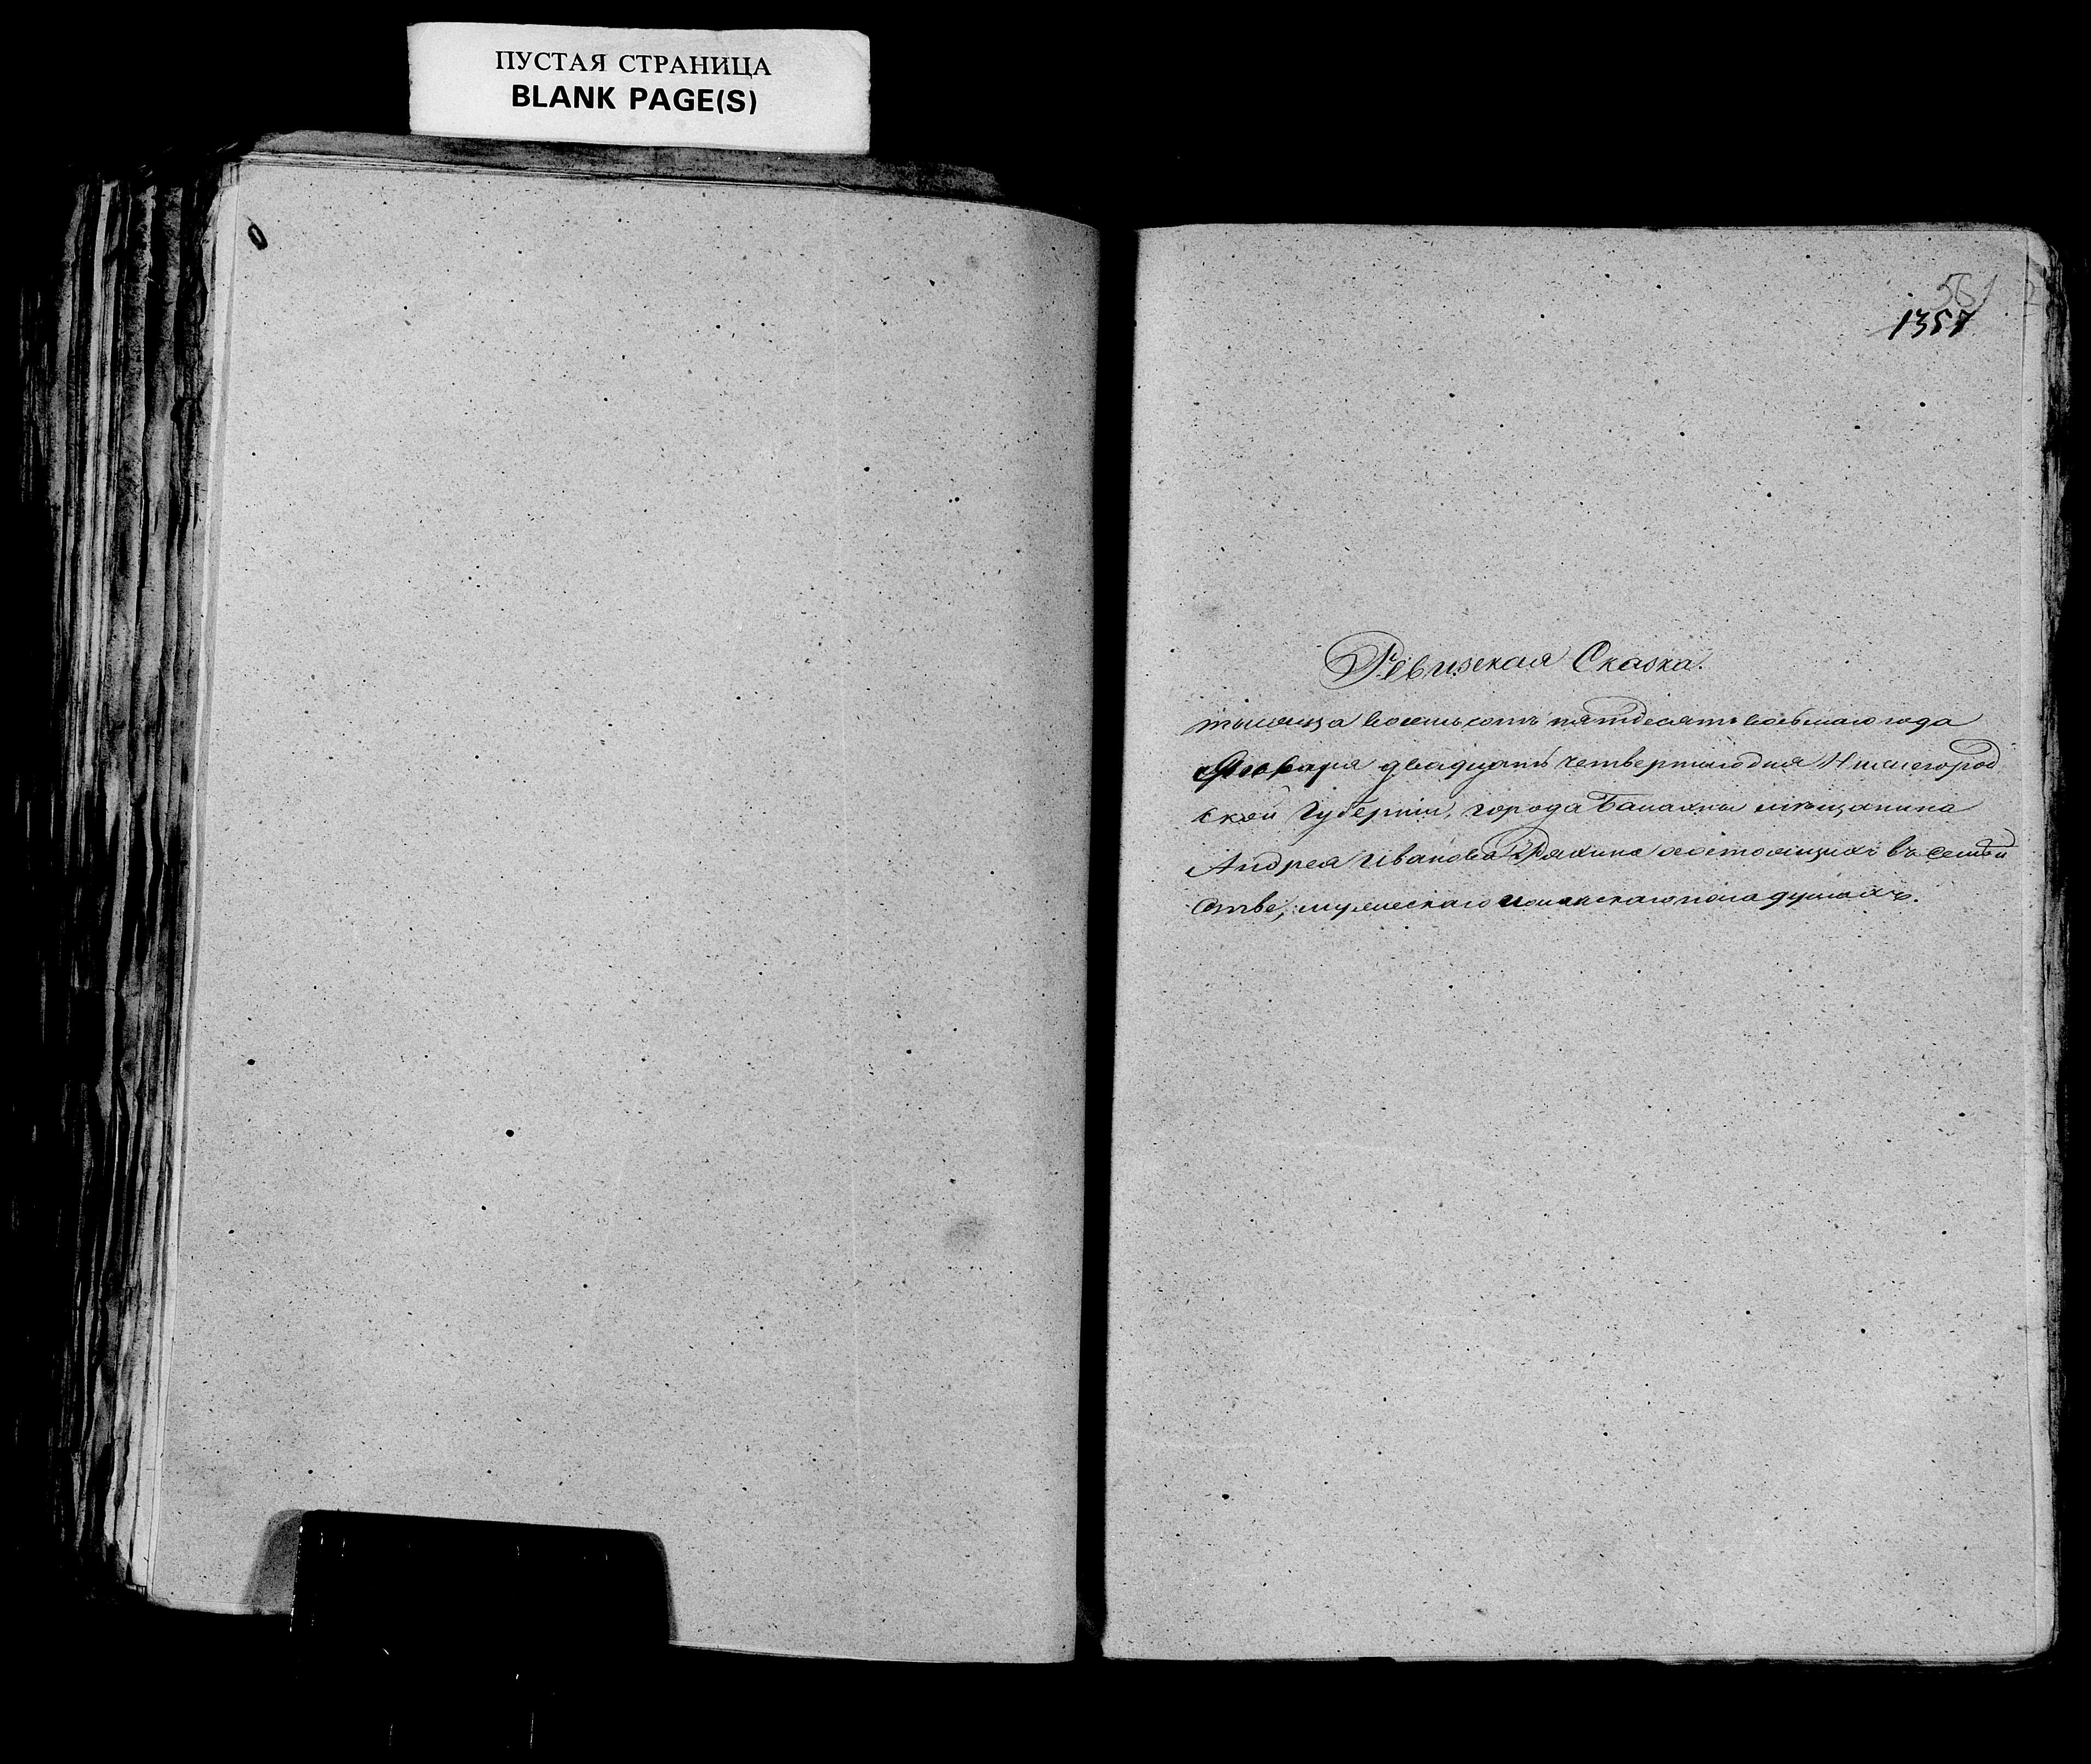 ПУСТАЯ СТРАНИЦА
BLANK PAGE(S)
1357
Ревизская Сказка.
тысяща восемьсотъ пятдесятъ восьмаго года
Января двадцать четвертаго дня Нижегород
ской Губерніи, города Балахны мѣщанина
Андрея Иванова состоящихъ въ семей
стве, мужескаго и женскаго пола душахъ.